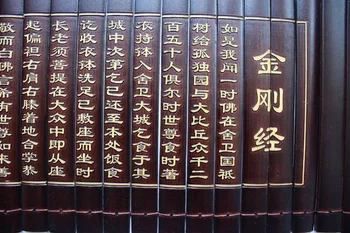 金刚经
如是我闻一时佛在舍卫国祇
村给孤独园与大比丘众千二
百五十人俱尔时世尊食时著
衣持钵入舍卫大城乞食于其
城中次第乞已还至本处饭食
讫收衣钵洗足已敷座而坐时
长老须菩提在大众中即从座
起偏袒右肩右膝着地合掌恭
敬而白佛言希有世尊如来善